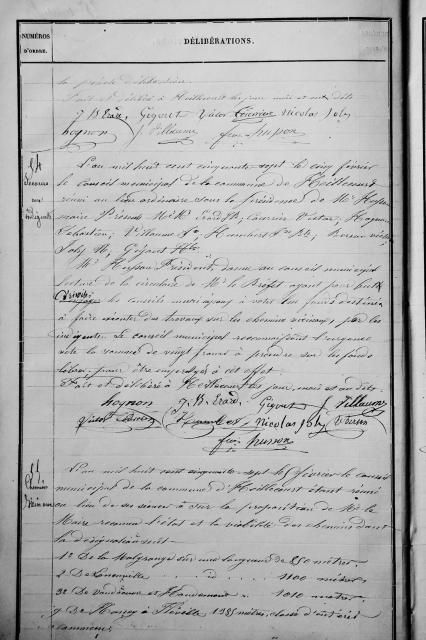 NUMÉROS
D'ORDRE.
DÉLIBÉRATIONS.
la présente délibération.
Fait et délibéré à Heillecourt les jour, mois et an dits
J. B. Erard, Gigout, Victor Nicolas Joly
hognon J. Villaume husson
54
Secours
aux
indigents
L'an mil huit cent cinquante sept le cinq février
le conseil municipal de la commune de Heillecourt
réuni au lieu ordinaire sous la présidence de Mr
maire Présents Mrs Victor, Hognon
Sébastien, Villaume Humbert
Joly N.
Mr Président, donne au conseil municipal
lecture de la circulaire de Mr le Préfet ayant pour but
les conseils municipaux à voter des fonds destinés
à faire exécuter des travaux sur les chemins vicinaux, par les
indigents. Le conseil municipal reconnaissant l'urgence
vote la somme de vingt francs à prendre sur les fonds
libres, pour être employés à cet effet.
Fait et délibéré à Heillecourt les jour, mois et an dits.
hognon J. B. Erard. Gigout J. Villaume
Victor Humbert Nicolas Joly
husson
Chemins
L'an mil huit cent cinquante sept le février le conseil
municipal de la commune d'Heillecourt étant réuni
au lieu de ses séances à sur la proposition de Mr le
Maire reconnu l'état et la viabilité des chemins dont
la désignation suit
1° De la Malgrange sur une longueur de 850 mètres.
2 De Laneuville id 1100 mètres
3° De Vandœuvre et Houdemont 1010 mètres.
4 De Nancy à Fléville 1985 mètres, classé d'intérêt
commun